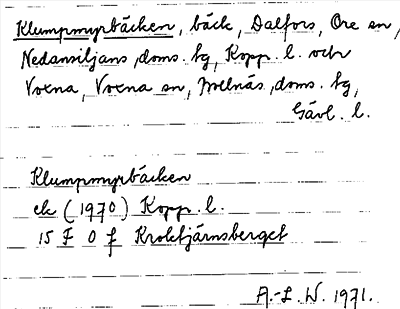 Klumpmyrbäcken, bäck, Dalfors, Ore sn,
Nedansiljans doms. tg, Kopp. l. och
Voxna, Voxna sn, Mellnäs doms. tg,
Gävl. l.
Klumpmyrbäcken
ek (1970) Kopp. l.
15 F 0 f Kroktjärnsberget
A.-L. W. 1971.